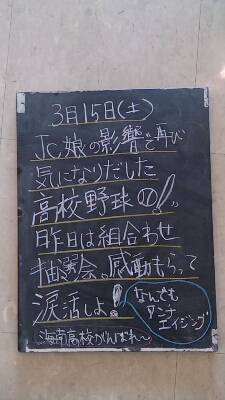 3月15日(土)
Jc娘の影響で再び
気になりだした
高校野球!!
昨日は組合わせ
抽選会。感動もらって
涙活しよ!
なんでも
アンチ
エイジング
海南高校がんばれ〜